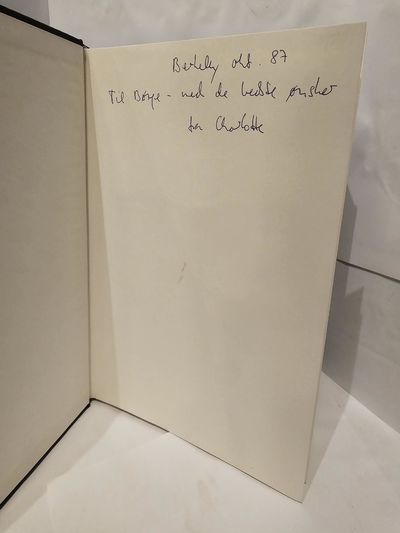 Berkeley okt. 87
Til Børje - med de bedste ønsker
fra Charlotte